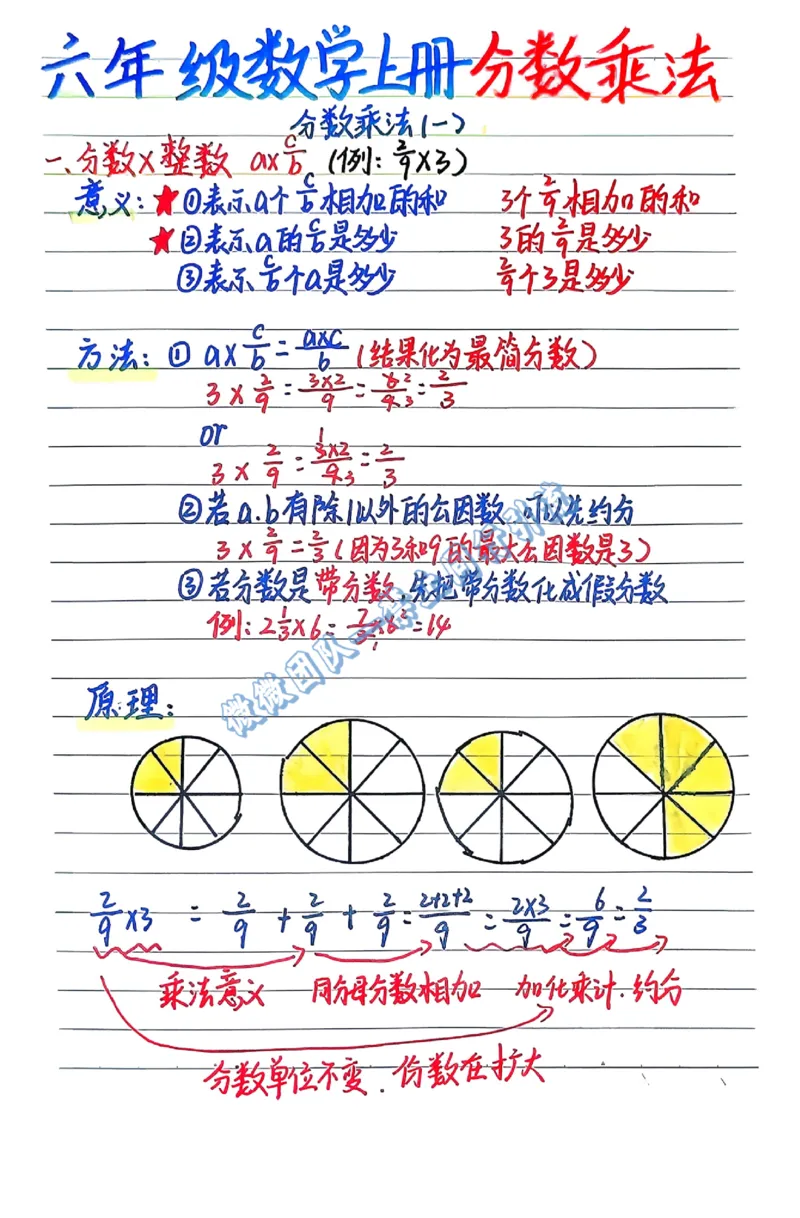 六年级数学上册分数乘法
分数乘法(一)
一、分数×整数 a×c/b (例:2/9×3)
意义:★①表示a个c/b相加的和 3个2/9相加的和
★②表示a的c/b是多少 3的2/9是多少
③表示c/b个a是多少 2/9个3是多少
方法:① a×c/b=a×c/b(结果化为最简分数)
3×2/9=3×2/9=6 2/9 3=2/3
or
3×2/9=1 3×2/9 3=2/3
②若a.b有除1以外的公因数,可以先约分
3×2/9=2/3(因为3和9的最大公因数是3)
③若分数是带分数,先把带分数化成假分数
例:2 1/3×6=7/3 1×6 2=14
原理:
2/9×3=2/9+2/9+2/9=2+2+2/9=2×3/9=6/9=2/3
乘法意义 同分母分数相加 加化乘计.约分
分数单位不变.份数在扩大